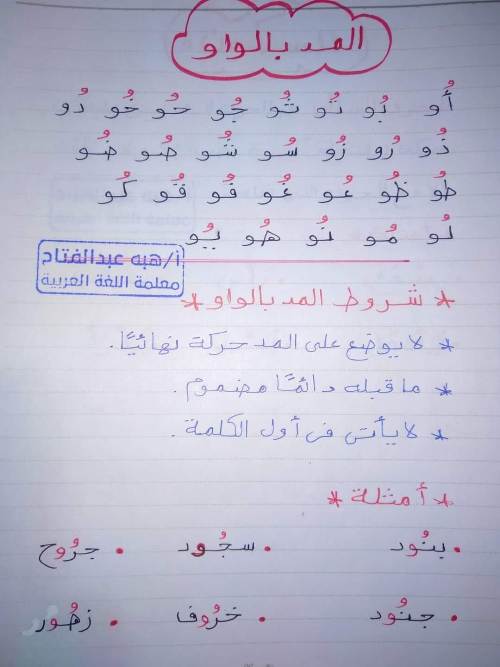 المد بالواو
أُو بُو تُو ثُو جُو حُو خُو دُو
ذُو رُو زُو سُو شُو صُو ضُو
طُو ظُو عُو غُو فُو قُو كُو
لُو مُو نُو هُو يُو
أ/هبه عبدالفتاح
معلمة اللغة العربية
* شروط المد بالواو *
* لا يوضع على المد حركة نهائيًا.
* ما قبله دائمًا مضموم.
* لا يأتى فى أول الكلمة.
* أمثلة *
• بنُود • سجُود • جرُوح
• جنُود • خرُوف • زهُور